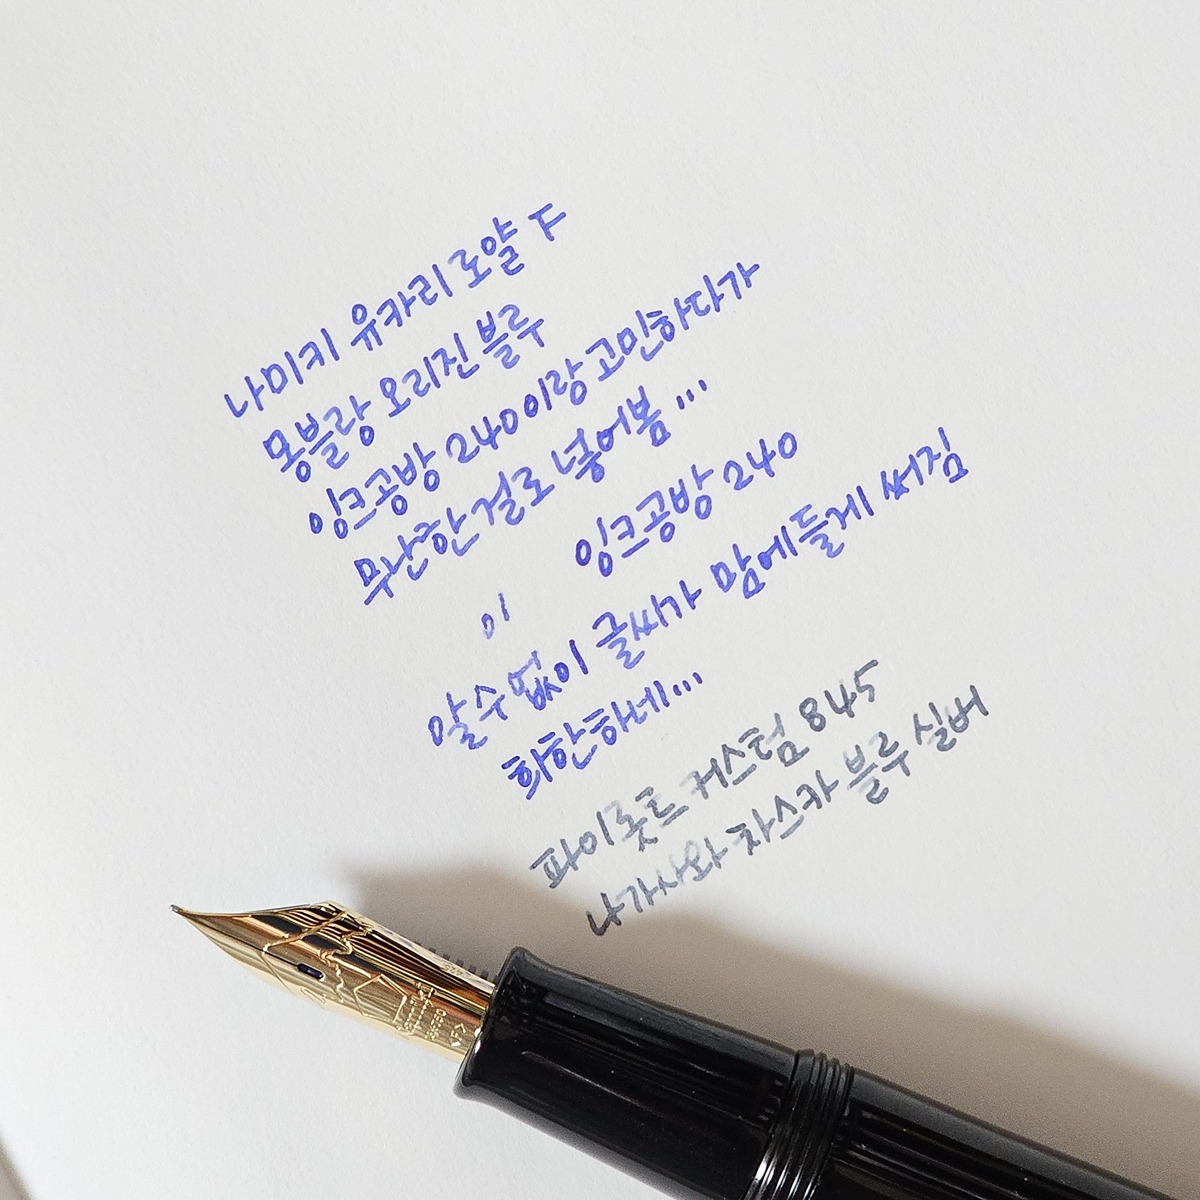 나미키 유카리 로얄 F
몽블랑 오리진 블루
잉크공방 240이랑 고민하다가
무난한걸로 넣어봄...
잉크공방 240
이
알수없이 글씨가 맘에들게 써짐
희한하네...
파이롯트 커스텀 845
나가사와 차스카 블루 실버